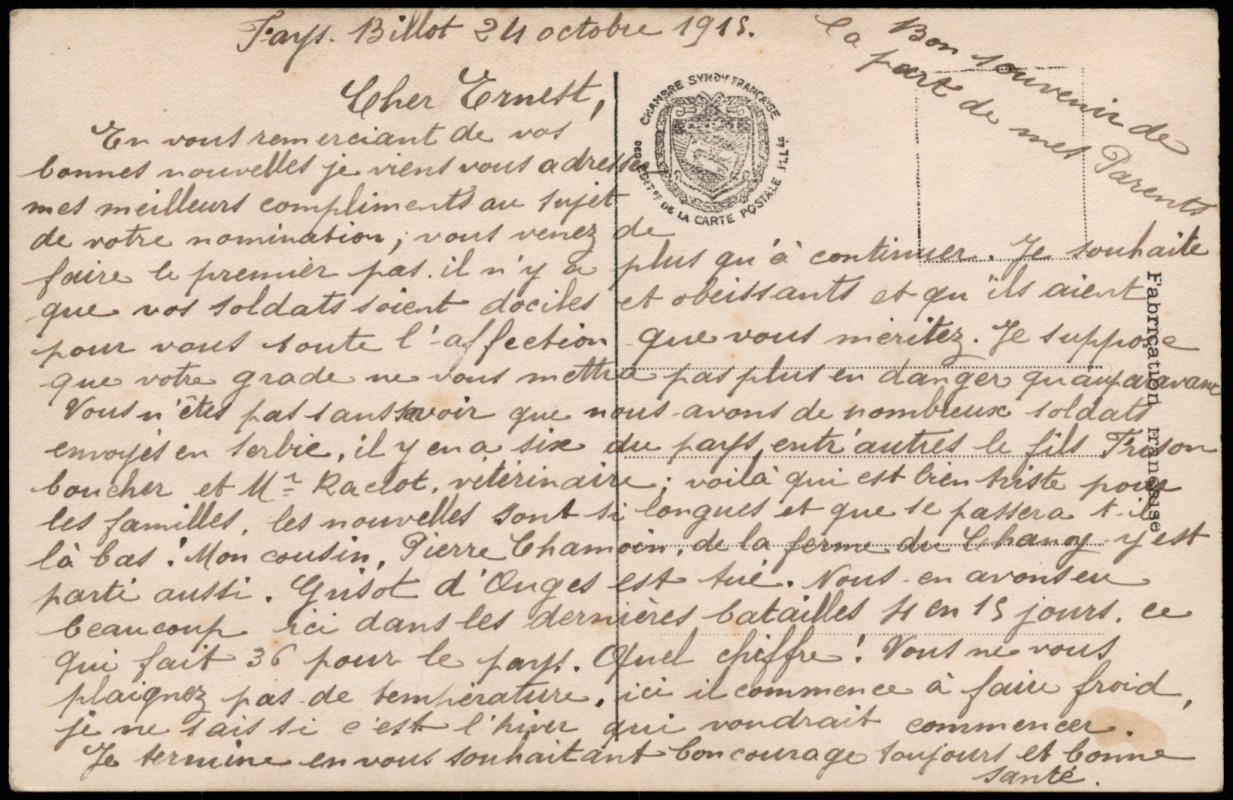 Fays. Billot 24 octobre 1915.
Bon souvenir de
la part de mes Parents
Cher Ernest,
En vous remerciant de vos
bonnes nouvelles je viens vous adresser
mes meilleurs compliments au sujet
de votre nomination; vous venez de
faire le premier pas. il n'y a plus qu'à continuer. Je souhaite
que vos soldats soient dociles et obéissants et qu'ils aient
pour vous toute l'affection que vous méritez. Je suppose
que votre grade ne vous mettra pas plus en danger qu'auparavant
Vous n'êtes pas sans savoir que nous avons de nombreux soldats
envoyés en Serbie, il y en a six du pays, entr'autres le fils
boucher et Mr Raclot, vétérinaire; voilà qui est bien triste pour
les familles, les nouvelles sont si longues et que se passera t-il
là bas! Mon cousin, Pierre Chamoin, de la ferme du Chanoy y est
parti aussi. Grisot d'Onges est tué. Nous en avons eu
beaucoup ici dans les dernières batailles 4 en 15 jours, ce
qui fait 36 pour le pays. Quel chiffre! Vous ne vous
plaignez pas de température, ici il commence à faire froid,
je ne sais si c'est l'hiver qui voudrait commencer.
Je termine en vous souhaitant bon courage toujours et bonne
santé.
CHAMBRE SYNDle FRANÇAISE
DES EDITrs DE LA CARTE POSTALE ILLée
Fabrication française